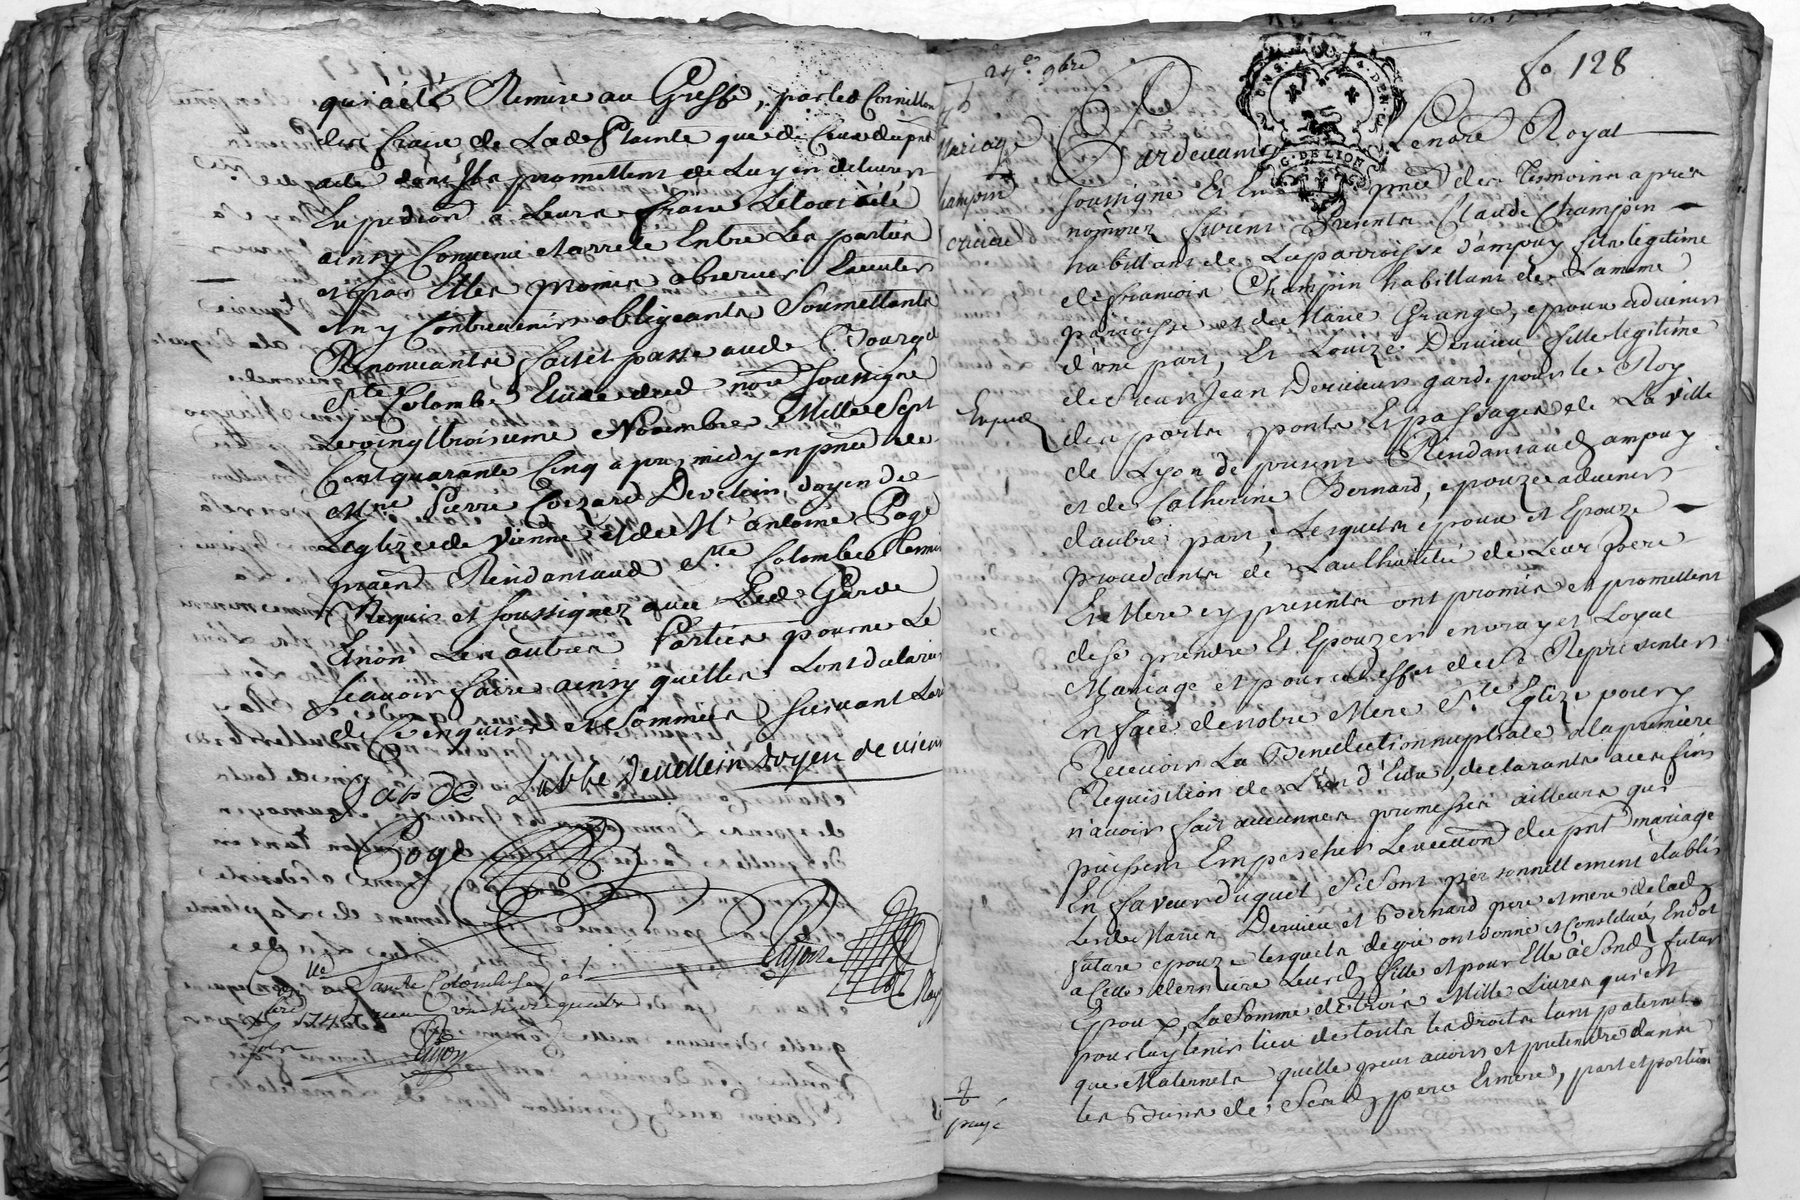 qui a été Remise au Greffe, par led Cornillon
des fraix de Lade Plainte que de Ceux du pnt
acte dont Ils promettent de Luy en delivrer
Expedion a Leurs fraix Le tout a été
ainsy Convenu et arreté Entre Les parties
et par Elles promis observer
obligeants Soumettants
Renonceants fait et passé aud Bourg de
Ste Colombe Etude dud nore soussigné
Le vingt troisieme Novembre Mille Sept
Cent quarante Cinq apres midy en pnce de
Mre Pierre Develein, doyen de
Leglize de Vienne et de Mr antoine Poge
Residant aud Ste Colombe
Requis et soussignez avec Led Garde
Et non Les autres Parties pour ne Le
sçavoir faire ainsy quelles L'ont declaré
de Ce enquises et Sommées suivant
garde Labbe develein doyen de vienne
Poge
Lujon
Con lle a Sainte Colombe
1745 quatre
Lujon
24e 9bre
fo 128
Mariage
Champin
Expedié
GEN DE LION
Pardevant Le nore Royal
soussigné Et En pnce des Temoins apres
nommez furent Presents Claude Champin
habittant de La parroisse d'ampuy fils legitime
de francois Champin habittant de La meme
parroisse et de Marie Grange, epoux advenir
d'une part, Et Louize Dervieu fille legitime
de Sieur Jean Dervieux garde pour le Roy
des ports ponts Et passages de La ville
de Lyon de present Residant aud ampuy
et de Catherine Bernard, epouze advenir
dautre part, Lesquels epoux et Epouze
procedants de Lauthorité de Leur pere
Et Mere cy presents ont promis et promettent
de se prendre Et Epouzer en vray et Loyal
Mariage et pour cet Effet de se Representer
En face de notre Mere Ste Eglize pour y
Recevoir La Benediction nuptiale a la premiere
Requisition de L'un d'Eux, declarants aux fins
n'avoir fait aucunnes promesses ailleurs qui
puissent Empescher Lexecution du pnt mariage
En faveur duquel, se sont personnellement établis
Lesdts Mariez Dervieu et Bernard pere et mere de lad
future epouze lesquels de gré ont donné et Constitué En dot
a Cette derniere Leurd fille et pour Elle a sond futur
Epoux, La somme de trois Mille Livres qui est
pour luy tenir lieu de touts les droits tant paternels
que Maternels quelle peut avoir et pretendre dans
les Biens de sesd pere Et mere, part et portion
payé